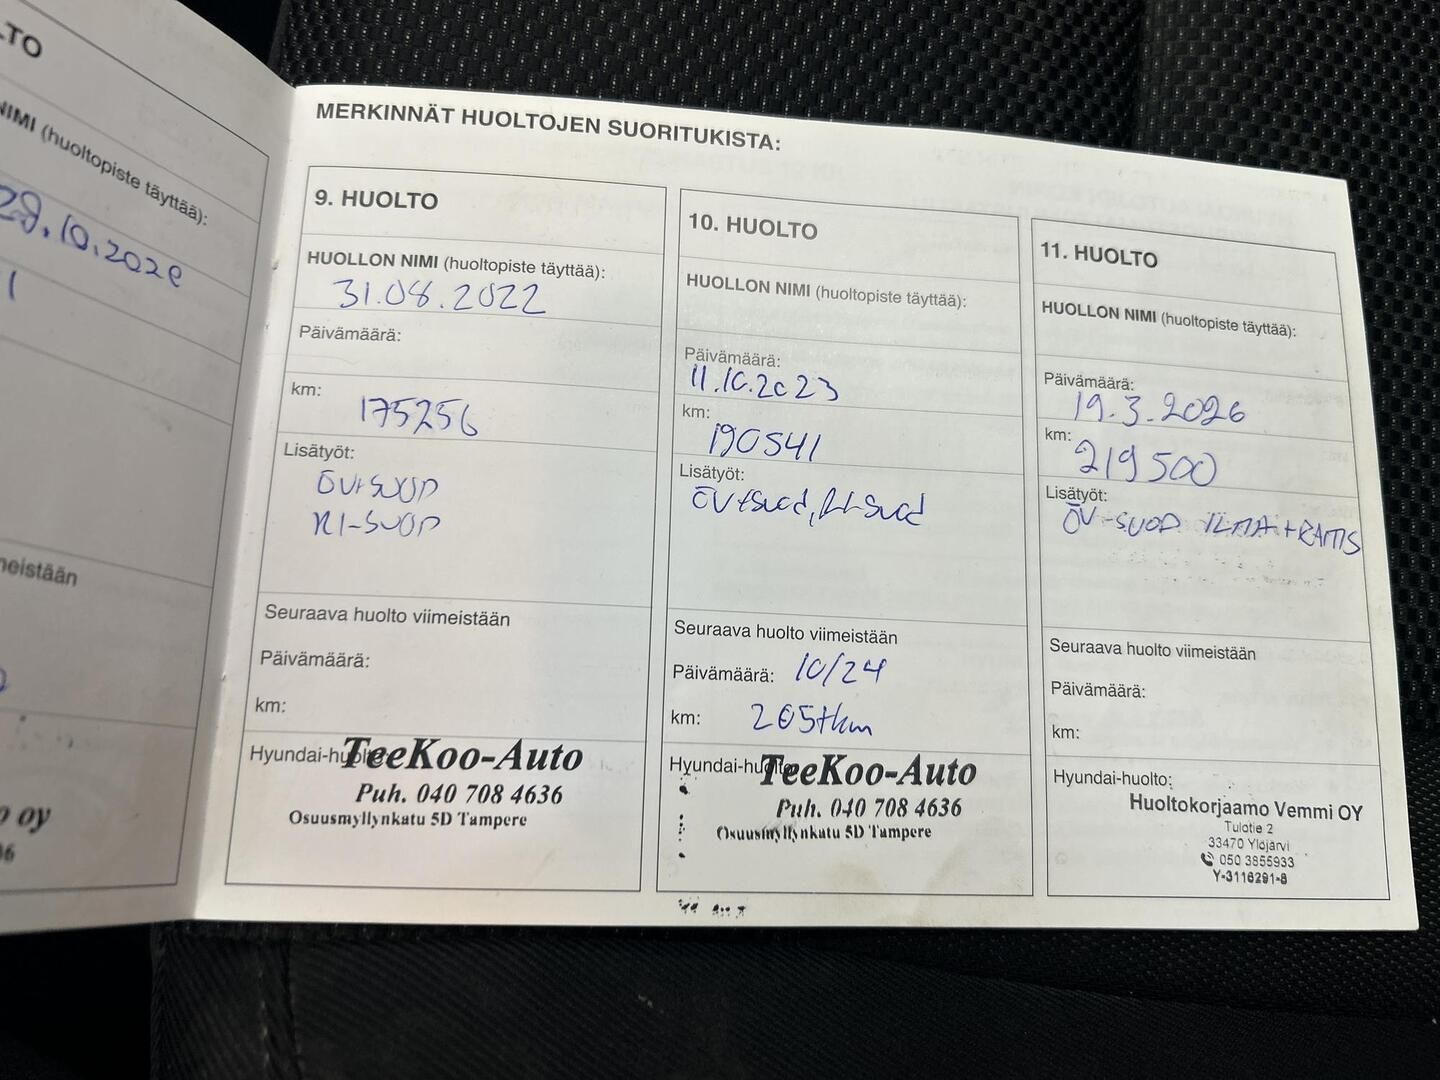 LTO
NIMI (huoltopiste täyttää):
28.10.202
neistään
o oy
MERKINNÄT HUOLTOJEN SUORITUKISTA:
9. HUOLTO
HUOLLON NIMI (huoltopiste täyttää):
31.08.2022
Päivämäärä:
km:
175256
Lisätyöt:
ÖV+SUOD
RI-SUOD
Seuraava huolto viimeistään
Päivämäärä:
km:
Hyundai-huolto:
TeeKoo-Auto
Puh. 040 708 4636
Osuusmyllynkatu 5D Tampere
10. HUOLTO
HUOLLON NIMI (huoltopiste täyttää):
Päivämäärä:
11.10.2023
km:
190541
Lisätyöt:
ÖV+suod,
Seuraava huolto viimeistään
Päivämäärä: 10/24
km: 205tkm
Hyundai-huolto:
TeeKoo-Auto
Puh. 040 708 4636
Osuusmyllynkatu 5D Tampere
11. HUOLTO
HUOLLON NIMI (huoltopiste täyttää):
Päivämäärä:
19.3.2026
km:
219500
Lisätyöt:
ÖV-SUOD ILMA+RAITIS
Seuraava huolto viimeistään
Päivämäärä:
km:
Hyundai-huolto:
Huoltokorjaamo Vemmi OY
Tulotie 2
33470 Ylöjärvi
050 3855933
Y-3116291-8